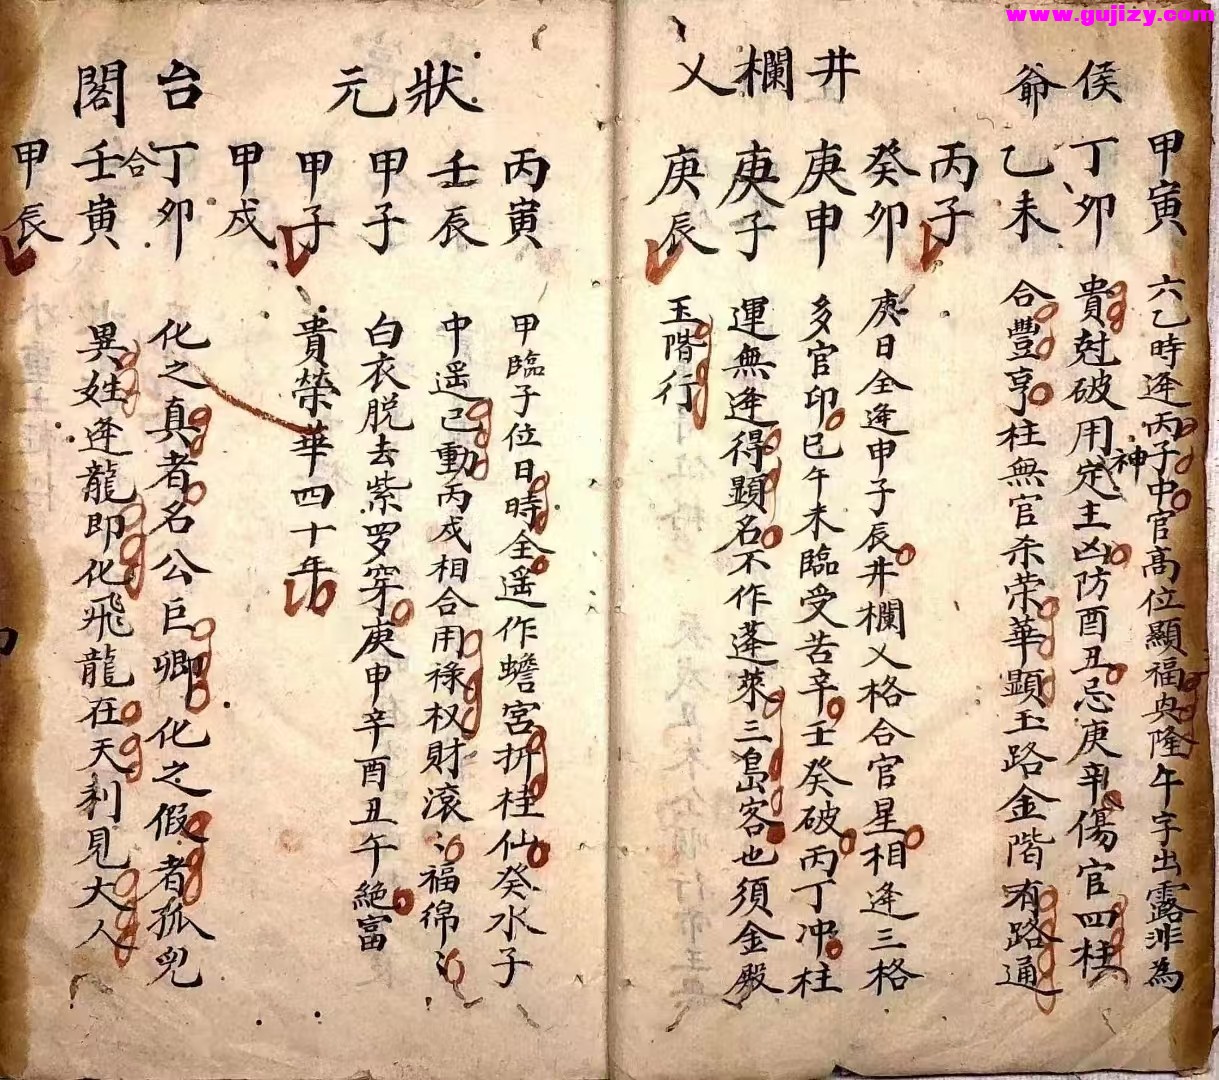 www.gujizy.com
侯爺
甲寅 六乙時逄丙子中官高位顯福央隆午字出露非為
丁卯 貴尅破用神定主凶防酉丑忌庚辛傷官四柱
乙未 合豐亨柱無官杀荣華顯玉路金階有路通
丙子
井欄乂
癸卯 庚日全逄申子辰井欄乂格合官星相逄三格
庚申 多官印巳午未臨受苦辛壬癸破丙丁冲柱
庚子 運無逄得顯名不作蓬萊三島客也須金殿
庚辰 玉階行
狀元
丙寅 甲臨子位日時全遥作蟾宮折桂仙癸水子
壬辰 中遥巳動丙戌相合用祿权財滾〻福綿〻
甲子 白衣脱去紫罗穿庚申辛酉丑午絶富
甲子 貴榮華四十年
甲戌
台閣
丁卯 化之真者名公巨卿化之假者孤兒
合
壬寅 異姓逄龍即化飛龍在天利見大人
甲辰